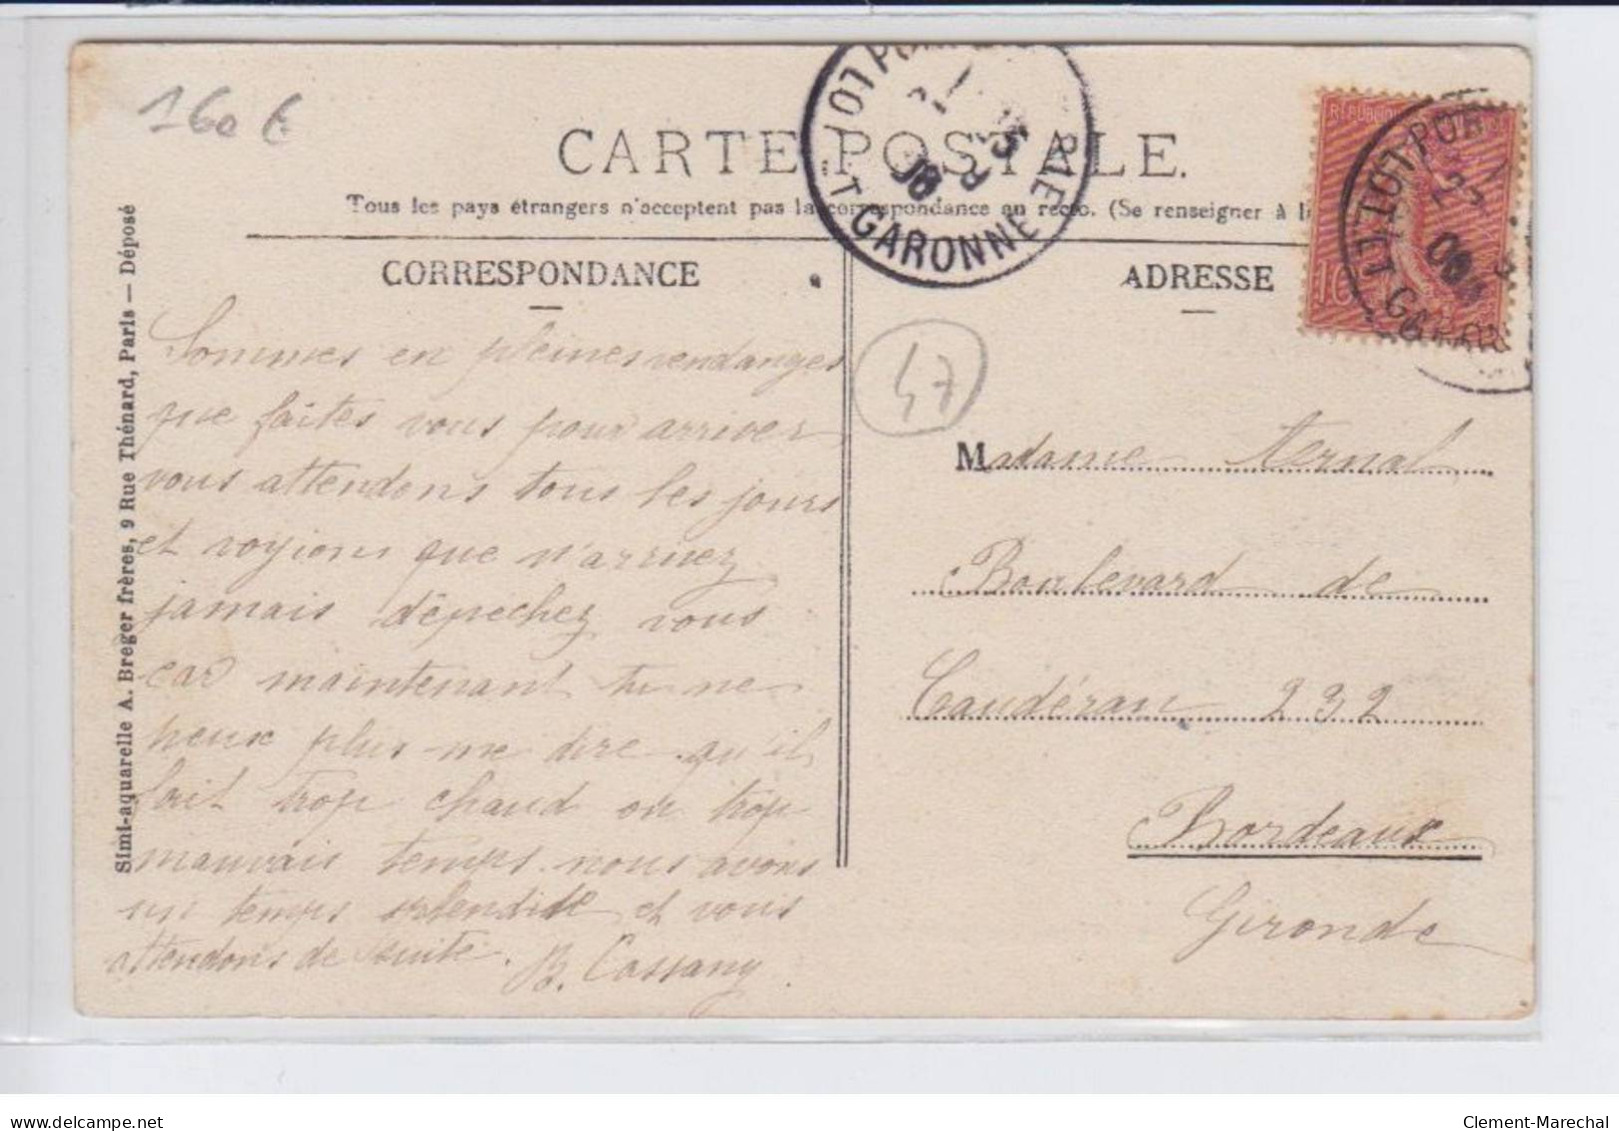 160 €
CARTE POSTALE.
Tous les pays étrangers n'acceptent pas la correspondance au recto. (Se renseigner à la
CORRESPONDANCE
Sommes en pleines vendanges
que faites vous pour arriver
vous attendons tous les jours
et voyions que n'arrivez
jamais dépechez vous
car maintenant tu ne
peux plus me dire qu'il
fait trop chaud ou trop
mauvais temps nous avons
un temps splendide et vous
attendons de suite. B. Cassany
Simi-aquarelle A. Breger frères, 9 Rue Thénard, Paris — Déposé
LOT GARONNE
06
47
ADRESSE
10
LOT ET GARON
Madame Ternal
Boulevard de
Caudéran 232
Bordeaux
Gironde
delcampe.net
Clement-Marechal